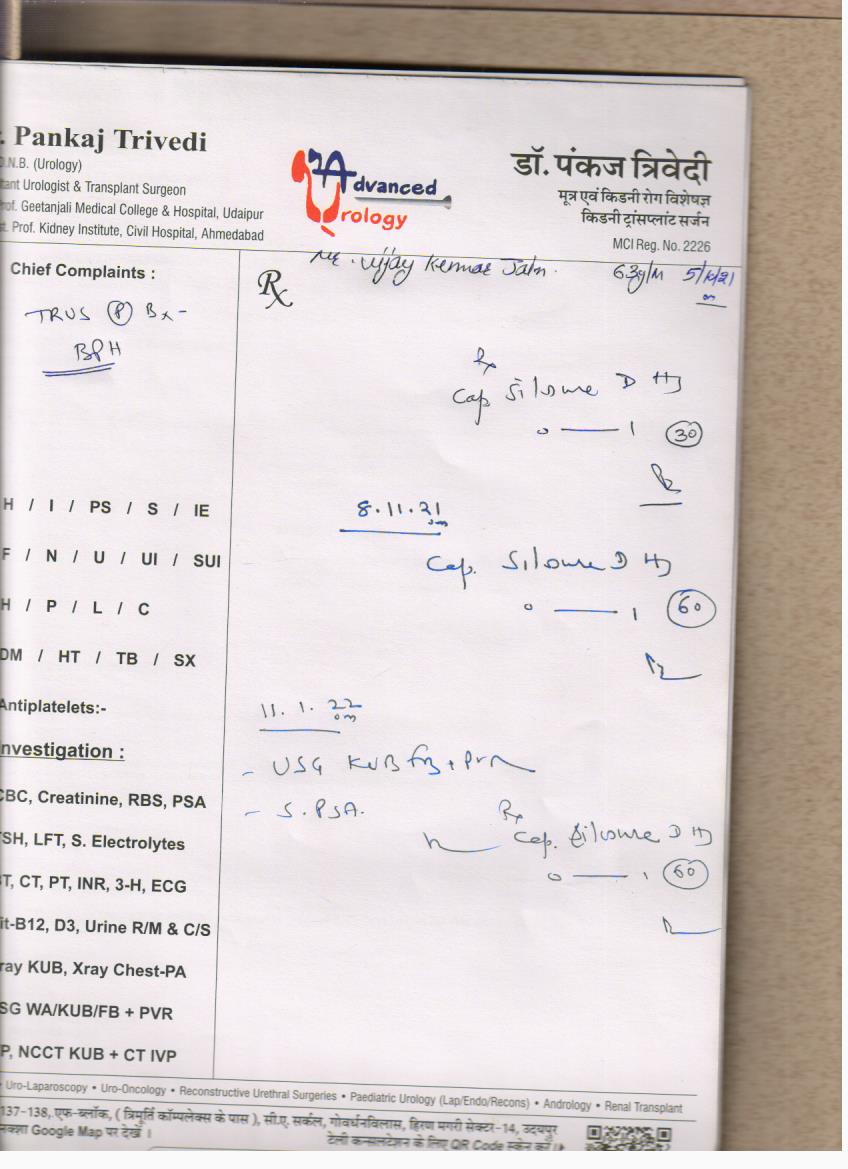 Pankaj Trivedi
D.N.B. (Urology)
Urologist & Transplant Surgeon
Prof. Geetanjali Medical College & Hospital, Udaipur
Prof. Kidney Institute, Civil Hospital, Ahmedabad
Advanced
Urology
डॉ. पंकज त्रिवेदी
मूत्र एवं किडनी रोग विशेषज्ञ
किडनी ट्रांसप्लांट सर्जन
MCI Reg. No. 2226
Mr. Vijay Kumar Jain. 63y/M
Chief Complaints :
Rx
TRUS (P) Bx -
BPH
Rx
Cap Silosure D
0 — 1 (30)
H / I / PS / S / IE
8.11.21
F / N / U / UI / SUI
Cap. Silosure D
0 — 1 (60)
H / P / L / C
DM / HT / TB / SX
Antiplatelets:-
11.1.22
Investigation :
- USG KUB FB + PVR
CBC, Creatinine, RBS, PSA
- S. PSA.
Rx
Cap. Silosure D
TSH, LFT, S. Electrolytes
0 — 1 (60)
BT, CT, PT, INR, 3-H, ECG
Vit-B12, D3, Urine R/M & C/S
Xray KUB, Xray Chest-PA
USG WA/KUB/FB + PVR
NCCT KUB + CT IVP
Uro-Laparoscopy • Uro-Oncology • Reconstructive Urethral Surgeries • Paediatric Urology (Lap/Endo/Recons) • Andrology • Renal Transplant
137-138, एफ-ब्लॉक, ( त्रिमूर्ति कॉम्पलेक्स के पास ), सी.ए. सर्कल, गोवर्धनविलास, हिरण मगरी सेक्टर-14, उदयपुर
नक्शा Google Map पर देखें । टेली कन्सलटेशन के लिए QR Code स्केन करें ।